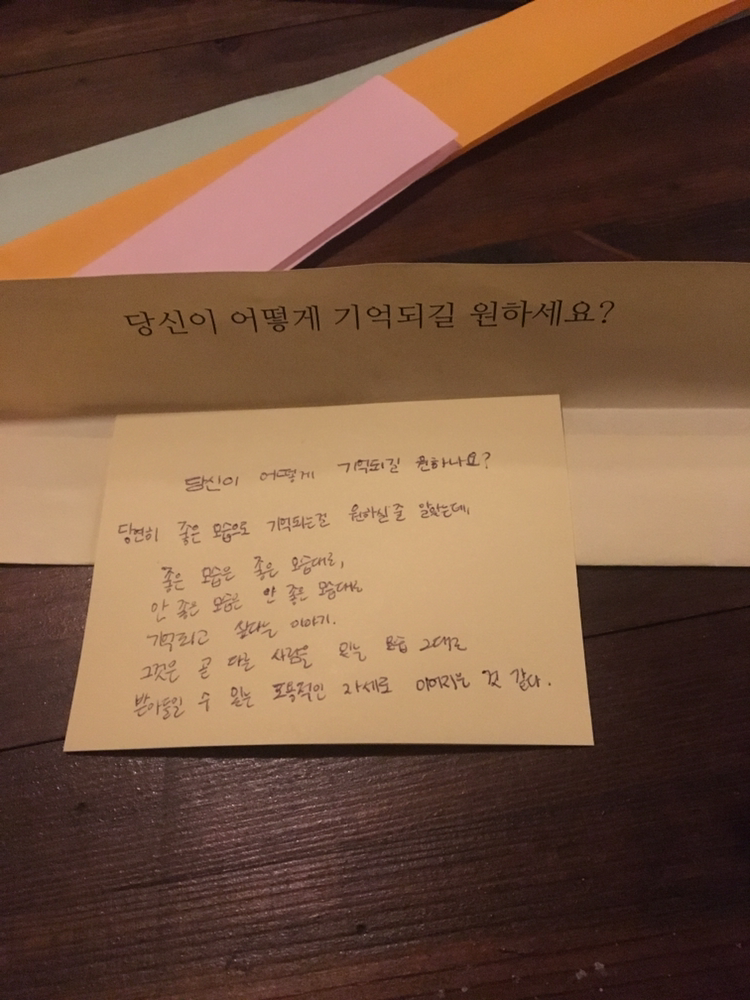 당신이 어떻게 기억되길 원하세요?
당신이 어떻게 기억되길 원하나요?
당연히 좋은 모습으로 기억되는걸 원하실 줄 알았는데,
좋은 모습은 좋은 모습대로,
안 좋은 모습은 안 좋은 모습대로
기억되고 싶다는 이야기.
그것은 곧 다른 사람을 있는 모습 그대로
받아들일 수 있는 포용적인 자세로 이어지는 것 같다.